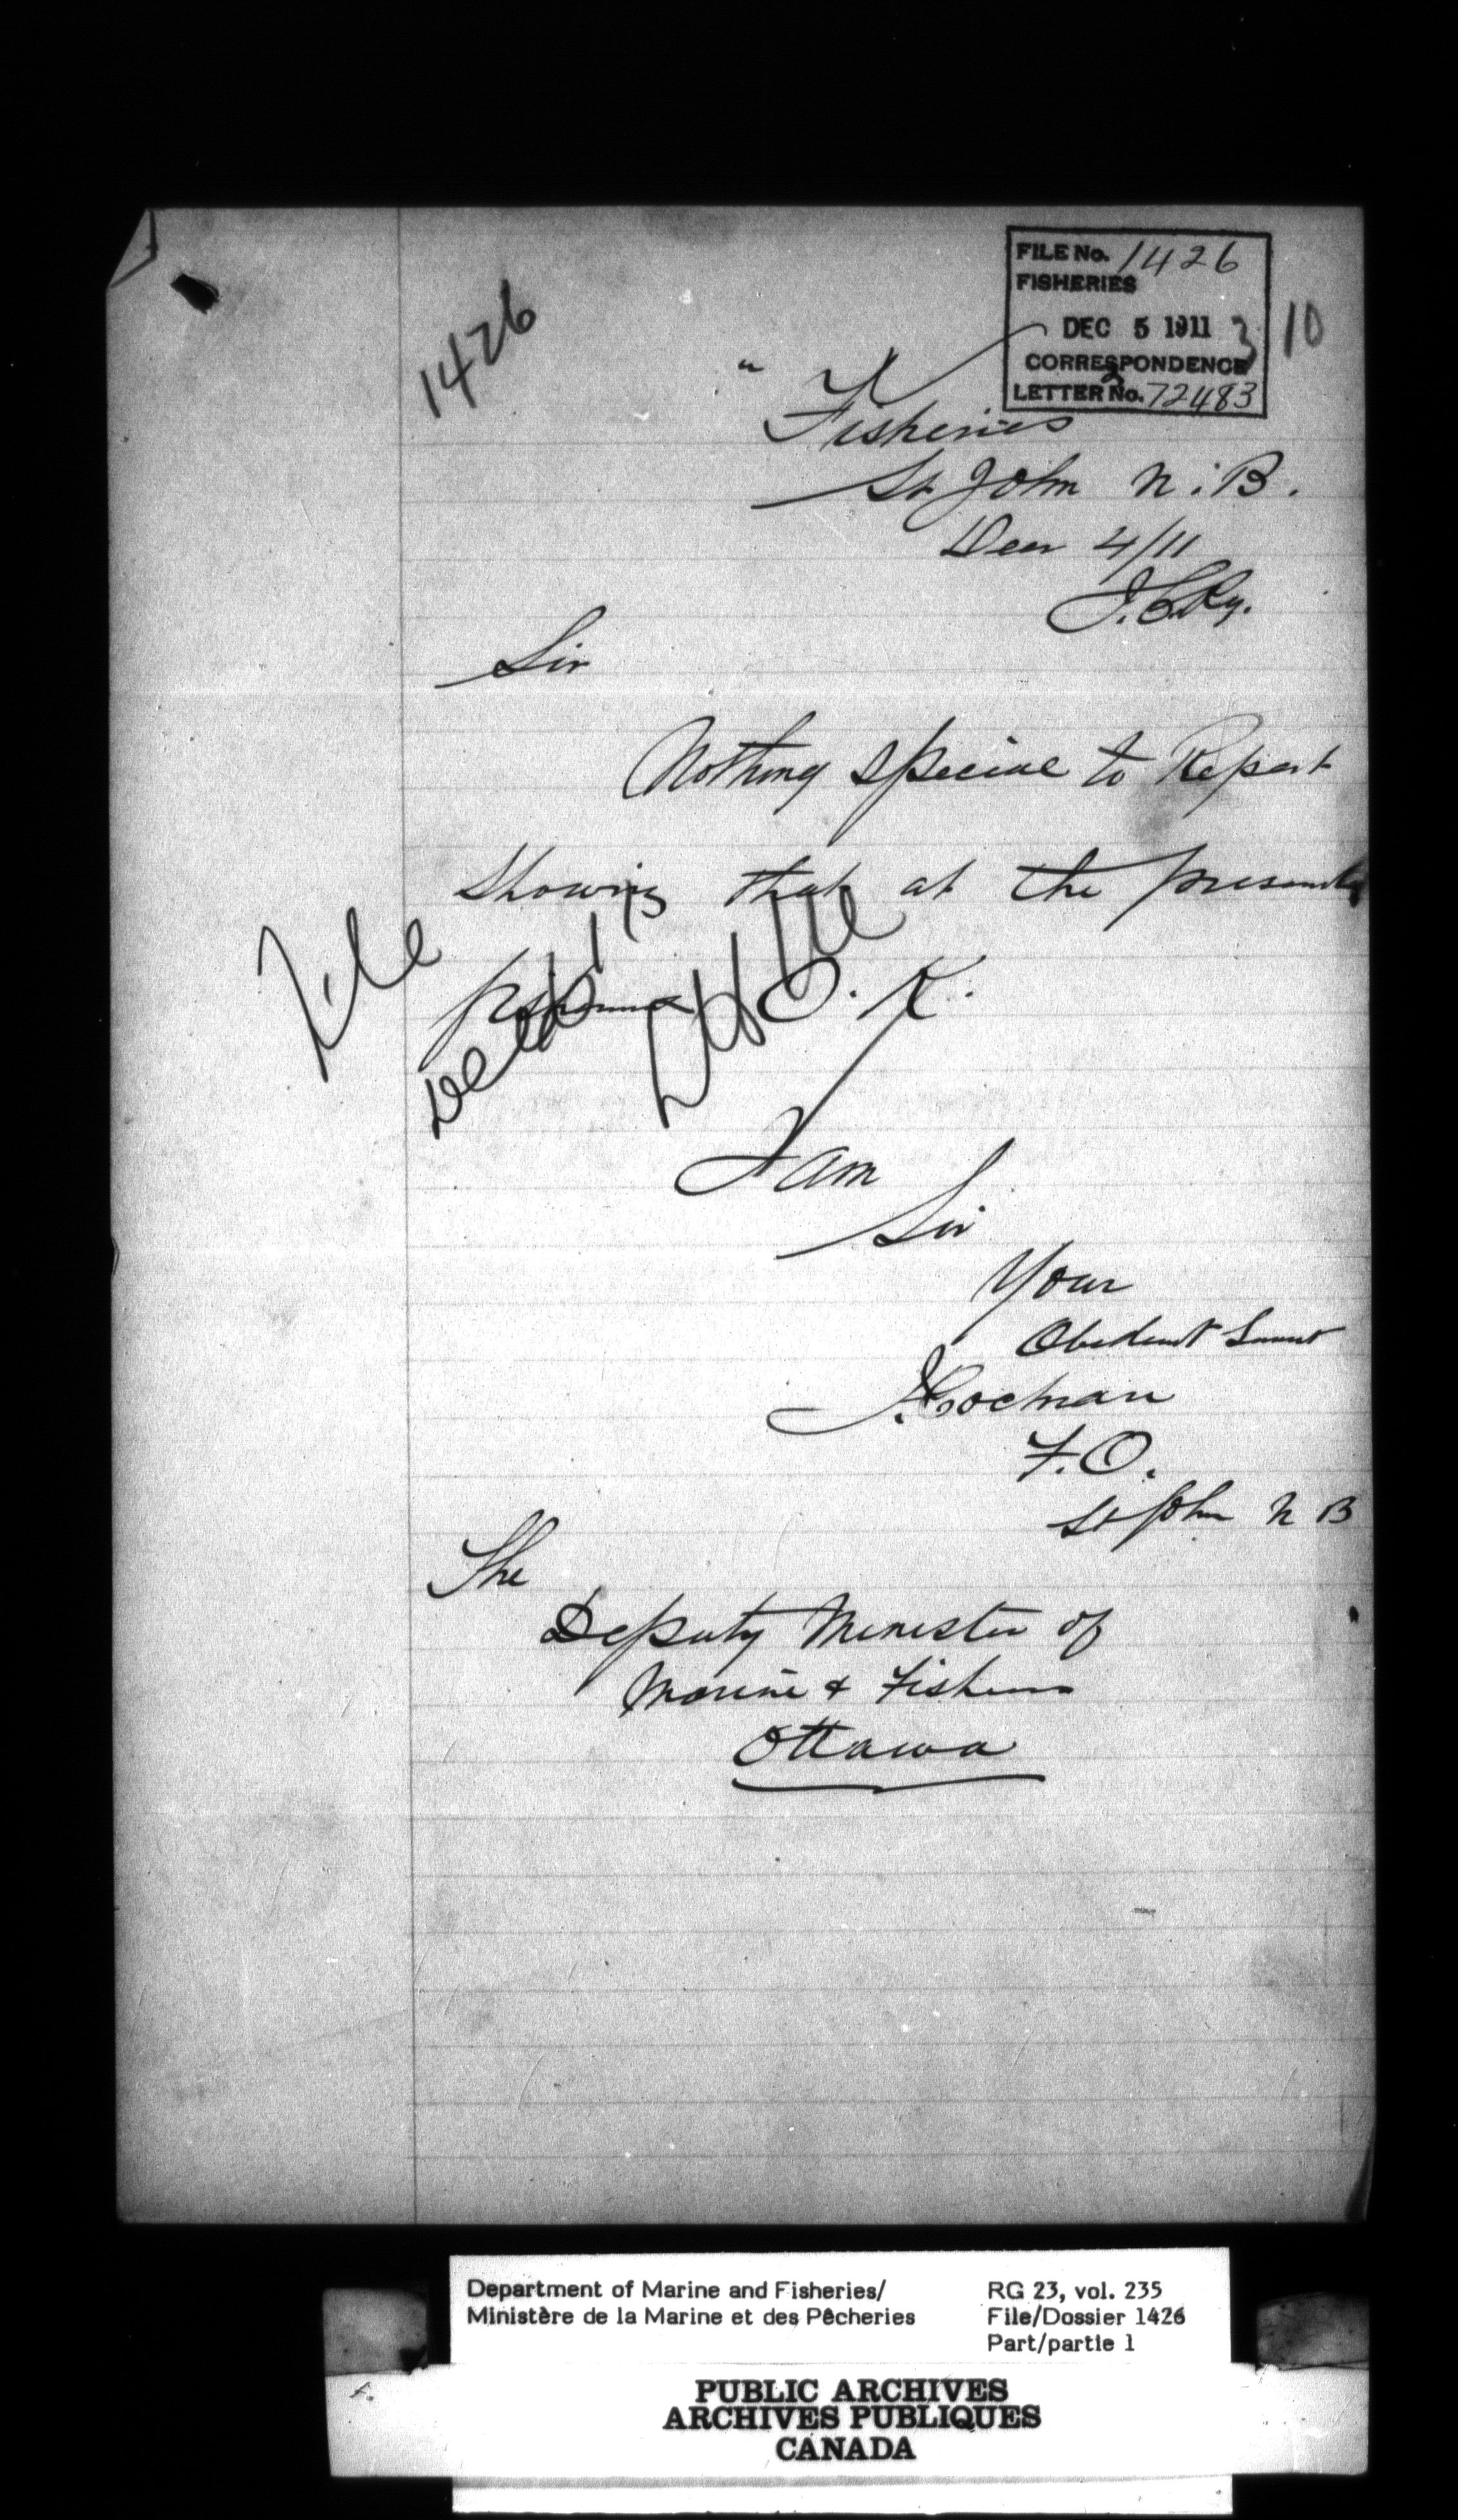 FILE No. 1426
FISHERIES
DEC 5 1911
CORRESPONDENCE
LETTER No. 72483
10
1426
Fisheries
St John N.B.
Decr 4/11
Sir
Nothing special to Report
Showing that at the present
O.K.
File
I am
Sir
Your
Obedient Servnt
J. Cochran
F.O.
St John N B
The
Deputy Minister of
Marine & Fisheries
Ottawa
Department of Marine and Fisheries/
Ministère de la Marine et des Pêcheries
RG 23, vol. 235
File/Dossier 1426
Part/partie 1
PUBLIC ARCHIVES
ARCHIVES PUBLIQUES
CANADA